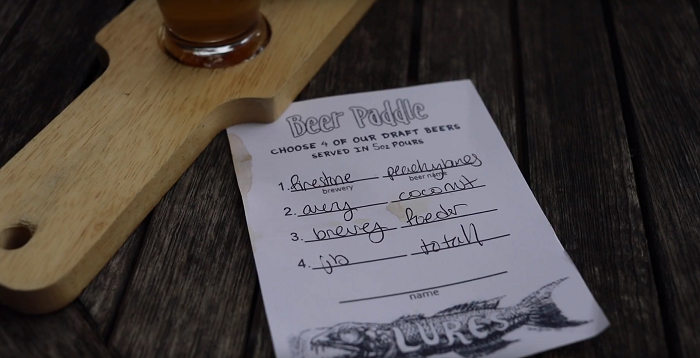 Beer Paddle
CHOOSE 4 OF OUR DRAFT BEERS
SERVED IN 5oz POURS
1. firestone peachy bones
brewery beer name
2. avery coconut
3. brewey foeder
4. jb totall
name
LURES